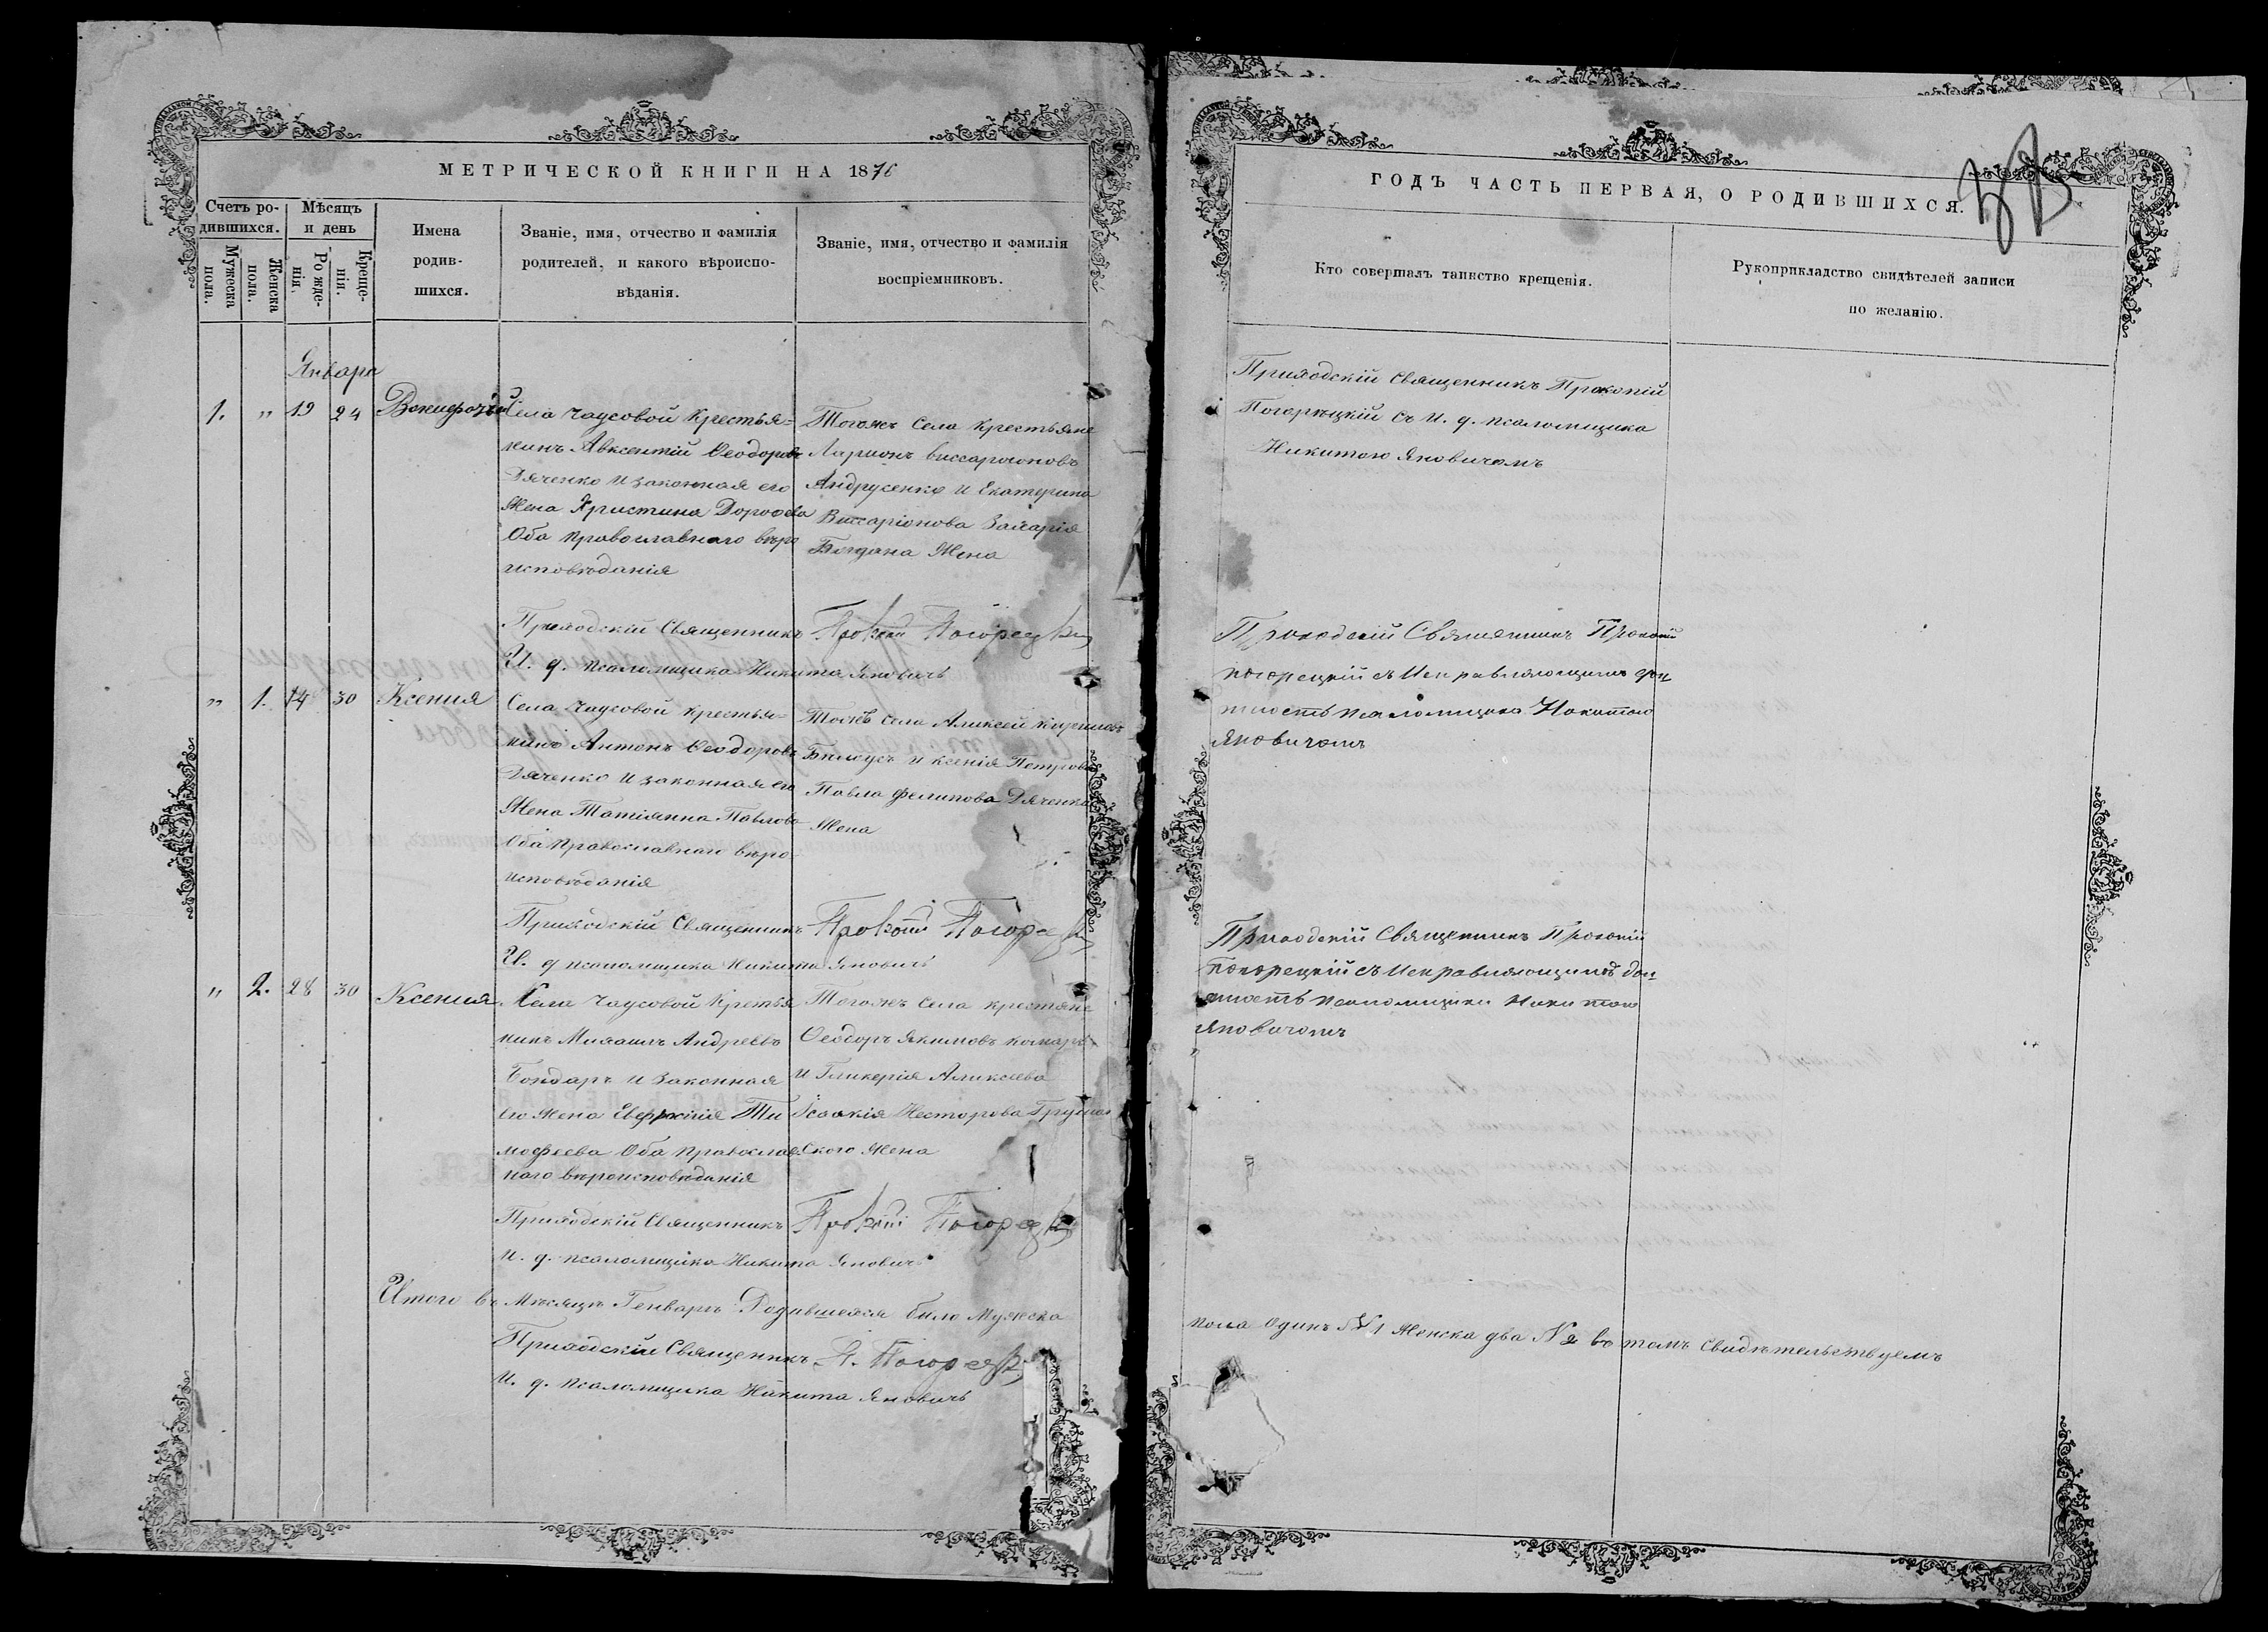 МЕТРИЧЕСКОЙ КНИГИ НА 1876
Счетъ родившихся.
Мѣсяцъ и день
Мужеска пола.
Женска пола.
Рожденія.
Крещенія.
Имена родившихся.
Званіе, имя, отчество и фамилія
родителей, и какого вѣроиспо-
вѣданія.
Званіе, имя, отчество и фамилія
воспріемниковъ.
Января
1. " 19 24
Села Чаусовой Крестья=
нинъ Авксентій Ѳеодоровъ
Дяченко и законная его
Жена Христина Дороѳева
Оба православнаго вѣро
исповѣданія
Тогожъ Села Крестьяне
Ларионъ Виссарионовъ
Андрусенко и Екатерина
Виссаріонова Захарія
Богдана Жена
Приходскій Священникъ Прокопій Погорецкій
И. д. псаломщика Никита Яновичъ
" 1. 14 30 Ксения
Села Чаусовой крестья=
нинъ Антонъ Ѳеодоровъ
Дяченко и законная его
Жена Татіянна Павлова
Оба православнаго вѣро-
исповѣданія
Тожъ села Алексей Кириловъ
Билоусъ и Ксенія Петрова
Павла Филипова Дяченка
Жена
Приходскій Священникъ Прокопій Погорецкій
И. д псаломщика Никита Яновичъ
" 2. 28 30 Ксения
Села Чаусовой Кретья
нинъ Михаилъ Андреевъ
Бондаръ и законная
его жена Ти
мофеева Оба православ
наго вѣроисповѣданія
Тогожъ Села крестяне
Ѳеодоръ Якимовъ Комаръ
и Гликерія Аликсеева
Ісаакія Несторова
ского Жена
Приходскій Священникъ Прокопій Погорецкій
И. д. псаломщика Никита Яновичъ
Итого въ Мѣсяцѣ Генварѣ Родившехся било Мужеска
Приходскій Священникъ П. Погорецкій
И. д. псаломщика Никита Яновичъ
ГОДЪ ЧАСТЬ ПЕРВАЯ, О РОДИВШИХСЯ.
Кто совершалъ таинство крещенія.
Рукоприкладство свидѣтелей записи
по желанію.
Приходскій Священникъ Прокопій
Погорецкій съ И. д. псаломщика
Никитою Яновичомъ
Приходскій Священникъ Прокопій
погорецкій съ Исправляющимъ дол
жность псаломщика Никитою
Яновичомъ
Приходскій Священникъ Прокопій
погорецкій съ Исправляющимъ дол-
жность псаломщика Никитою
Яновичомъ
пола Одинъ №1 Женска два №2 въ томъ Свидѣтельствуемъ